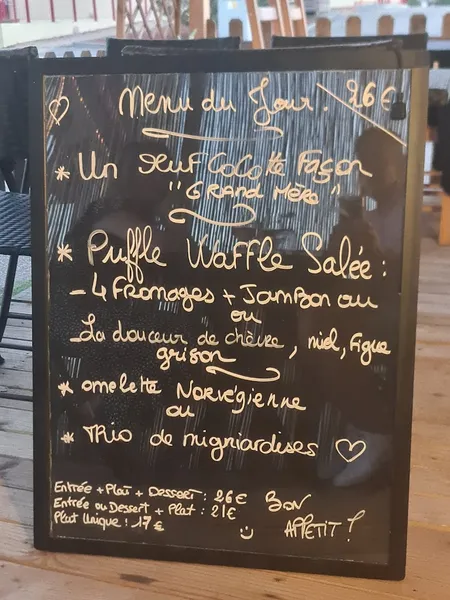 Menu du Jour : 26€
* Un Oeuf Cocotte Façon
"GRAND Mère"
* Puffle Waffle Salée :
- 4 Fromages + Jambon ou
ou
- La douceur de chèvre, miel, Figue
grison
* omelette Norvégienne
ou
* Trio de migniardises
Entrée + Plat + Dessert : 26€
Entrée ou Dessert + Plat : 21€
Plat Unique : 17€
BON
APPETIT !